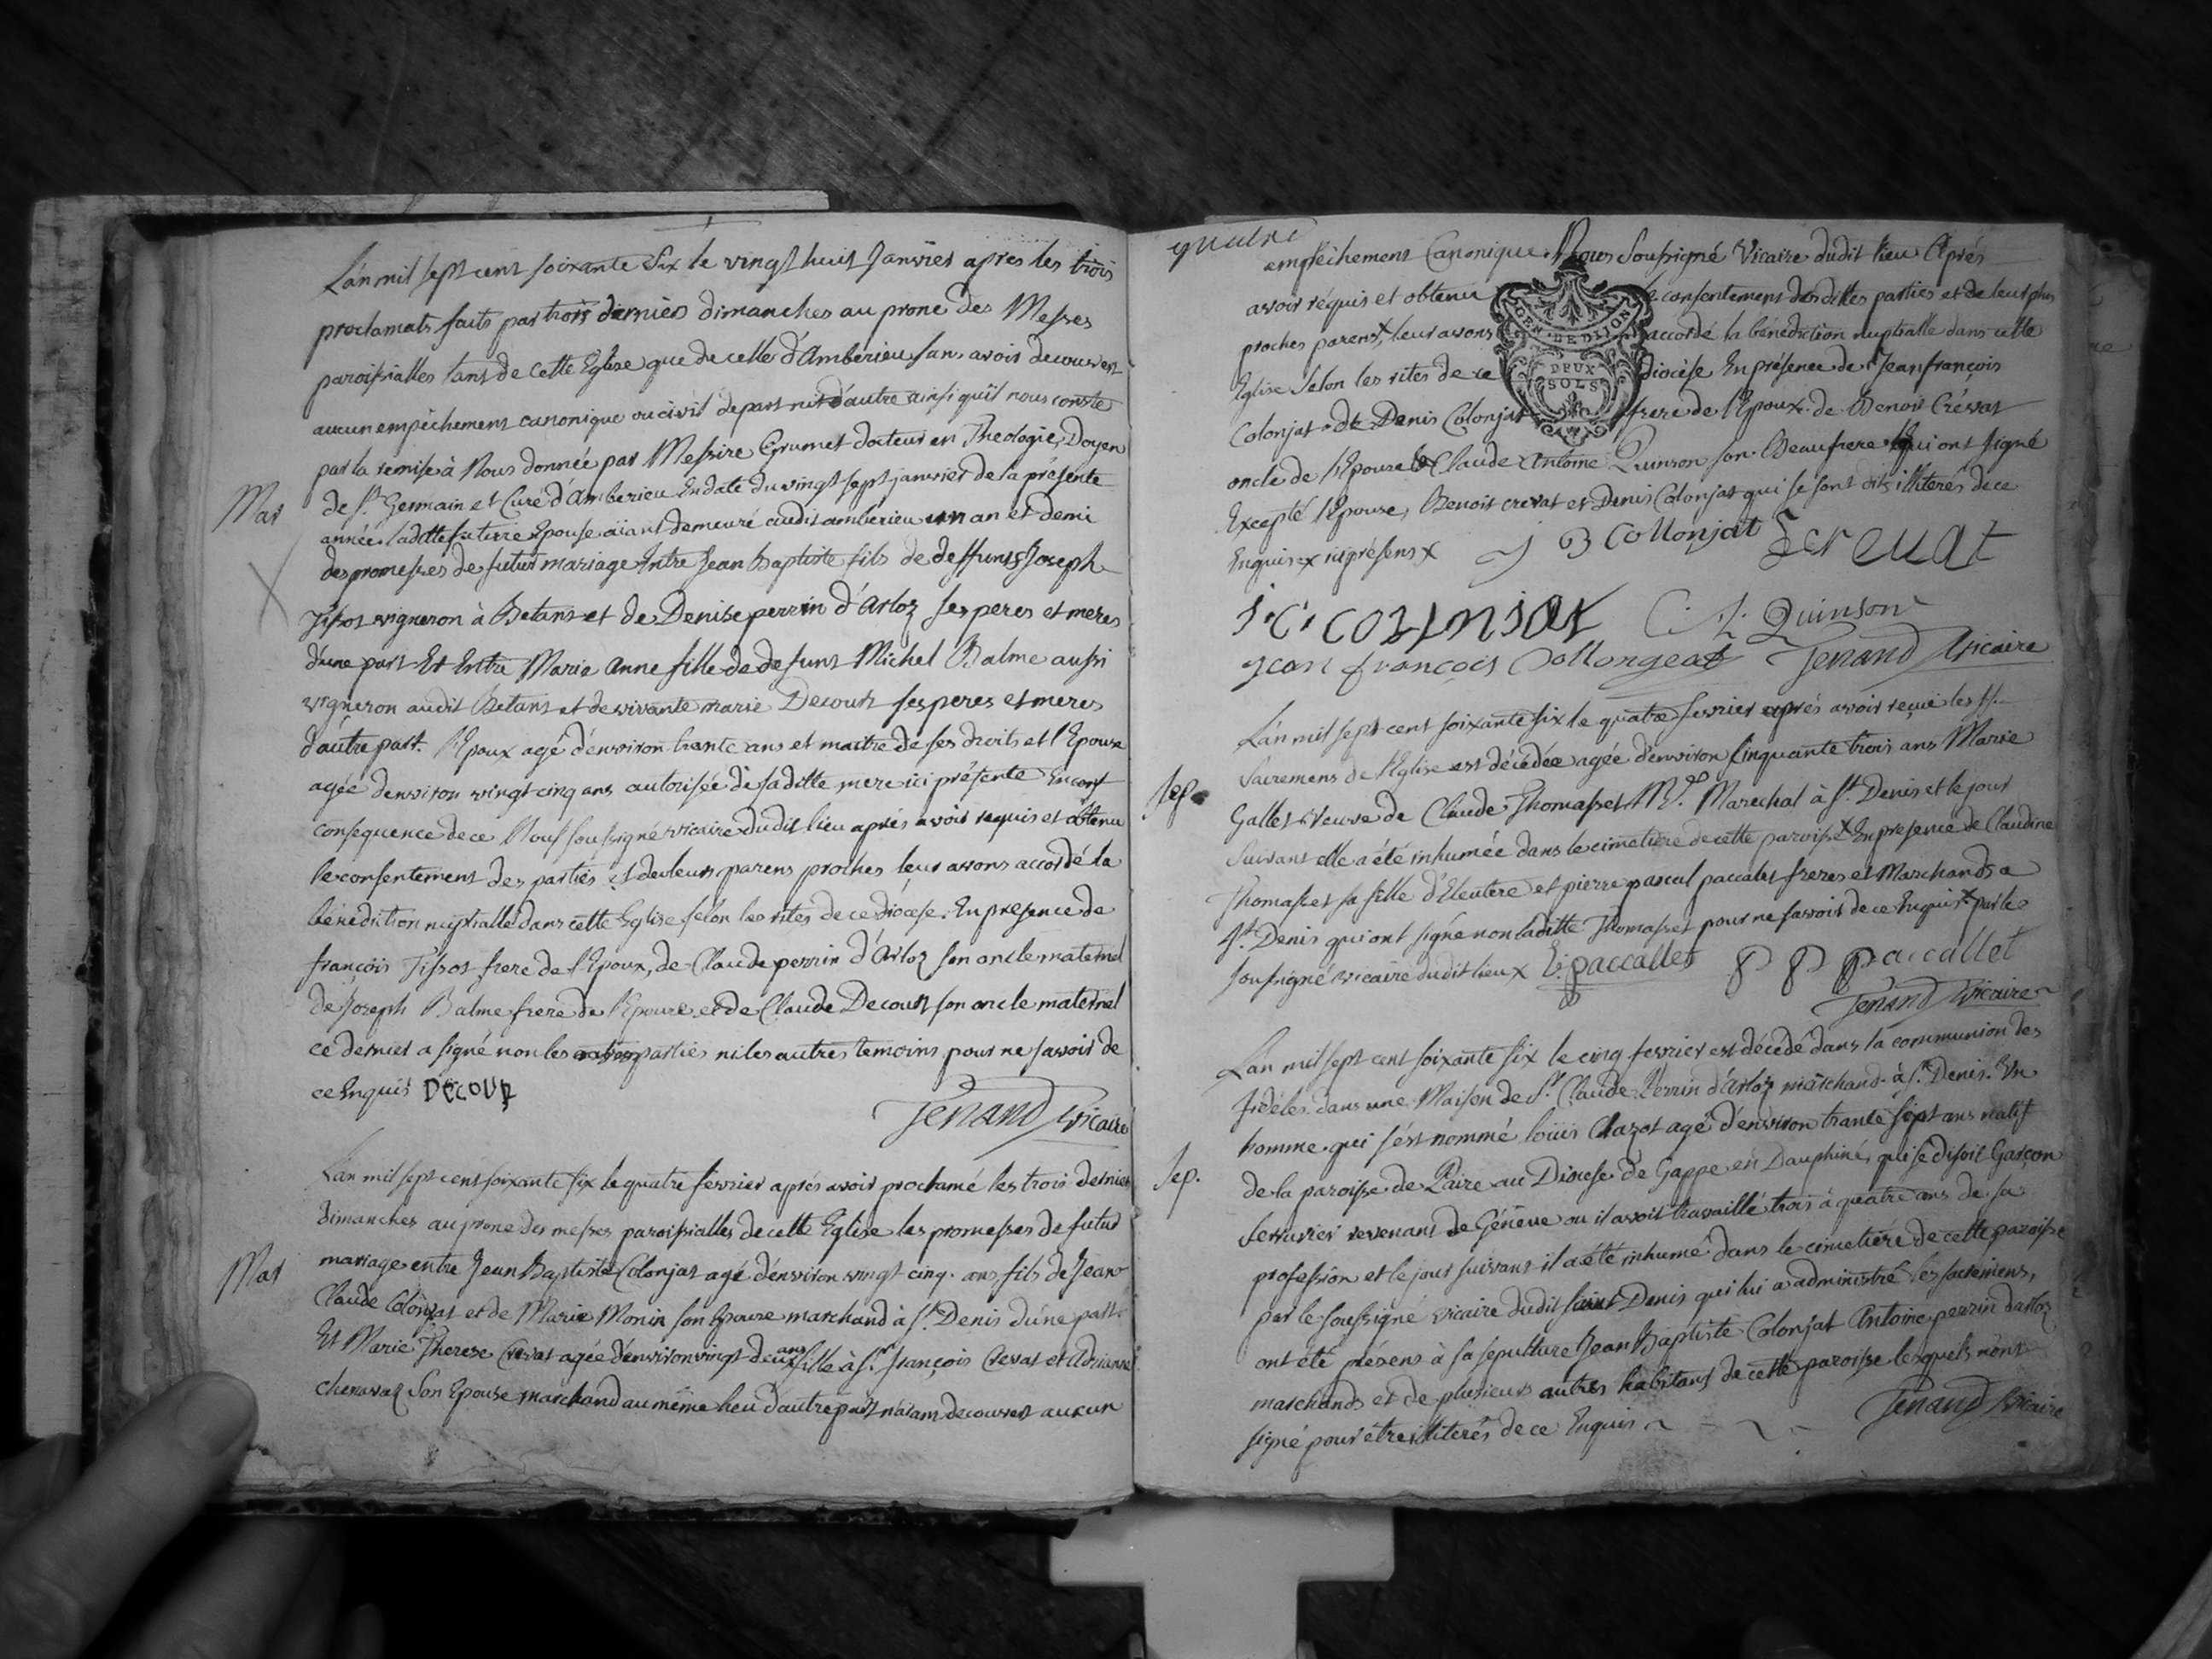 L'an mil sept cent soixante Six le vingt huit Janvier apres les trois
proclamats faits par trois derniers dimanches au prone des Messes
paroissialles tant de cette Eglise que de celle d'Amberieu sans avoir decouvert
aucun empêchement canonique ou civil de part ni d'autre ainsi qu'il nous conste
par la remise à Nous donnée par Messire Grumet docteur en Theologie, Doyen
Mar
de St. Germain et Curé d'Amberieu En date du vingt sept janvier de la présente
année, laditte future Epouse aiant demeuré audit amberieu un an et demi
des promesses de futur mariage Entre Jean Baptiste fils de deffunts Joseph
Tissot vigneron à Betans et de Denise perrin d'Arloz ses peres et meres
d'une part Et Entre Marie Anne fille de defunt Michel Balme aussi
vigneron audit Betans et de vivante marie Decour ses peres et meres
d'autre part. l'Epoux agé d'environ trente ans et maitre de ses droits et l'Epouse
agée d'environ vingt cinq ans autorisée de saditte mere ici présente En conf
consequence de ce Nous soussigné vicaire dudit lieu aprés avoir requis et obtenu
le consentement des parties et de leurs parens proches leur avons accordé la
bénédiction nuptialle dans cette Eglise selon les rites de ce diocèse. En presence de
françois Tissot frere de l'Epoux, de Claude perrin d'Arloz son oncle maternel
de Joseph Balme frere de l'Epouse et de Claude Decour son oncle maternel
ce dernier a signé non les parties ni les autres temoins pour ne savoir de
ce Enquis DECOUR
Tenand Vicaire
L'an mil sept cent soixante six le quatre fevrier aprés avoir proclamé les trois derniers
dimanches au prone des messes paroissialles de cette Eglise les promesses de futur
Mar
mariage entre Jean Baptiste Colonjat agé d'environ vingt cinq ans fils de Jean
Claude Colonjat et de Marie Monin son Epouse marchand à St. Denis d'une part
Et Marie Therese Crevat agée d'environ vingt deux ans fille à Sr. françois Crevat et Adrianne
chenavaz son Epouse marchand au même lieu d'autre part n'aiant decouvert aucun
quatre
empêchement Canonique. Nous soussigné Vicaire dudit lieu Aprés
avoir réquis et obtenu le consentement des dittes parties et de leur plus
proches parens, leur avons accordé la bénédiction nuptialle dans cette
Eglise selon les rites de ce diocèse En présence de Jean françois
GEN. DE DIJON
DEUX
SOLS
Colonjat de Denis Colonjat frere de l'Epoux de Benoit Crévat
oncle de l'Epouse Claude Antoine Quinson son Beaufrere qui ont signé
Excepté l'Epouse, Benoit crevat et Denis Colonjat qui se sont dits illiterés de ce
Enquis x J B Collonjat Crevat
C. A. Quinson
Jean françois Collongeat Tenand Vicaire
L'an mil sept cent soixante six le quatre fevrier aprés avoir reçue les SS.
Sacremens de l'Eglise est décédée agée d'environ Cinquante trois ans Marie
Sep.
Gallet Veuve de Claude Thomasset Md. Marechal à St. Denis et le jour
suivant elle a été inhumée dans le cimetiere de cette paroisse x En presence de Claudine
Thomasset sa fille d'Eleutere et pierre pascal paccalet freres et Marchands a
St. Denis qui ont signé non laditte Thomasset pour ne savoir de ce Enquis x par le
soussigné vicaire dudit lieu x E. paccallet P P paccallet
Tenand Vicaire
L'an mil sept cent soixante six le cinq fevrier est décédé dans la communion des
fidéles dans une Maison de Sr. Claude Perrin d'Arloz marchand à St. Denis. Un
homme qui s'est nommé loüis Chazot agé d'environ trante sept ans natif
Sep.
de la paroisse de Paire au Diocese de Gappe en Dauphiné, qui se disoit Garçon
serrurier revenant de Géneve ou il avoit travaillé trois à quatre ans de sa
profession et le jour suivant il a été inhumé dans le cimetiére de cette paroisse
par le soussigné vicaire dudit saint Denis qui lui a administré les sacremens,
ont été présens à sa sépulture Jean Baptiste Colonjat Antoine perrin darloz
marchands et de plusieurs autres habitans de cette paroisse lesquels n'ont
signé pour être illiterés de ce Enquis Tenand Vicaire